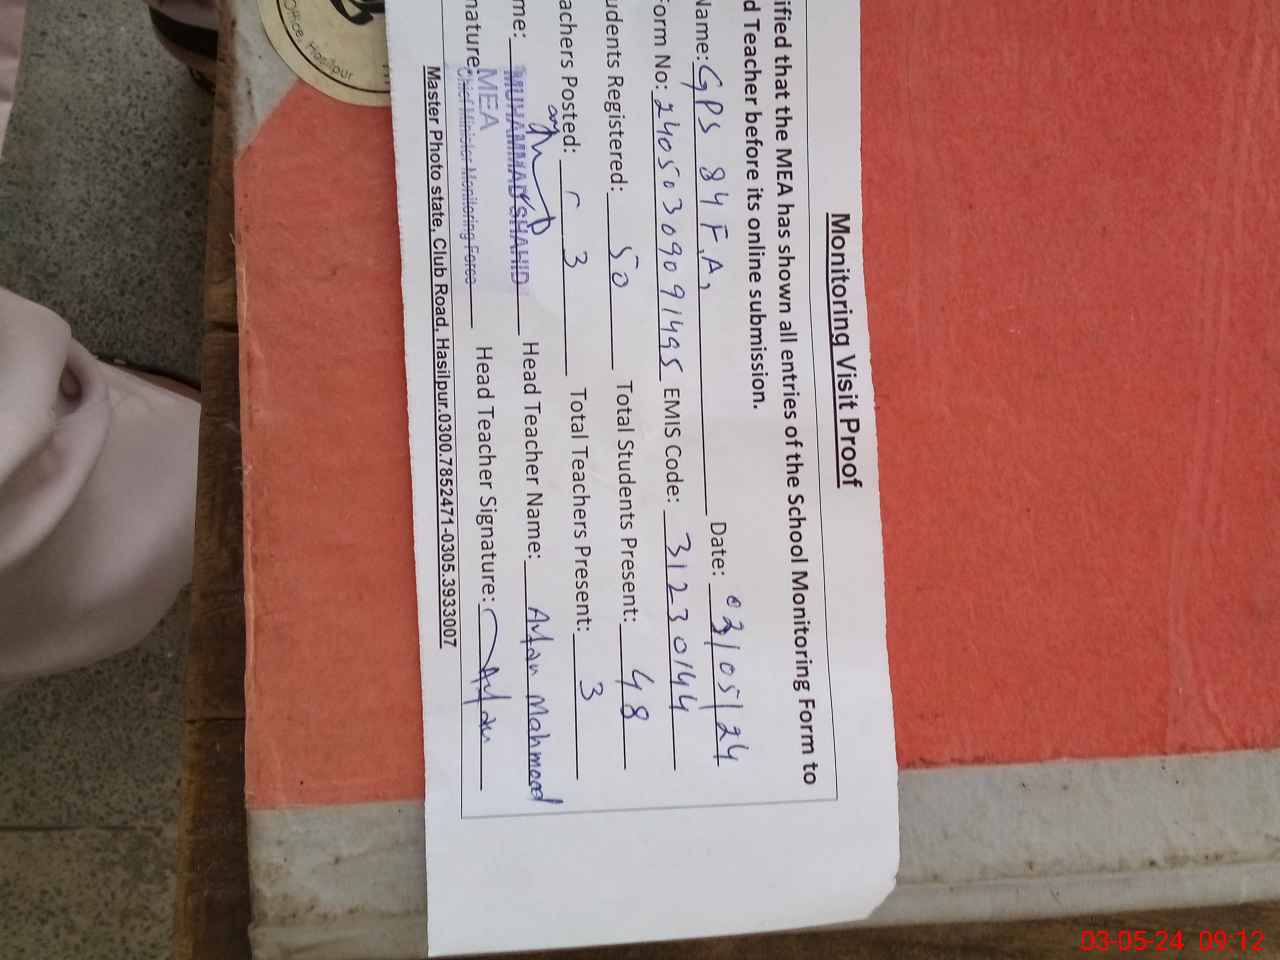 Monitoring Visit Proof
ified that the MEA has shown all entries of the School Monitoring Form to
d Teacher before its online submission.
Name: GPS 84 F.A, Date: 03/05/24
Form No: 24050309091495 EMIS Code: 31230144
udents Registered: 50 Total Students Present: 48
achers Posted: 3 Total Teachers Present: 3
me: MUHAMMAD SHAHID Head Teacher Name: Mahmood
nature: MEA Head Teacher Signature:
Chief Minister Monitoring Force
Master Photo state, Club Road, Hasilpur.0300.7852471-0305.3933007
Office, Hasilpur
03-05-24 09:12